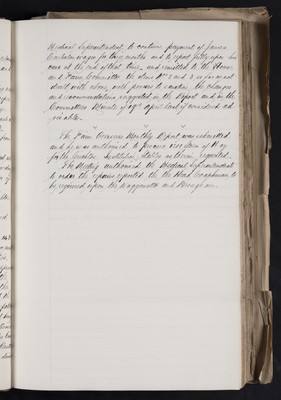 Medical Superintendent to continue payment of James
wages for three months and to report fully upon his
case at the end of that time, and remitted to the House
and Farm Committee the items Nos 2 and 3 in so far as not
dealt with above, with powers to make the changes
and recommendations suggested in the Report and in the
Committee's Minute of 29th April last if considered ad-
visable.
The Farm Overseer's Monthly Report was submitted
and he was authorised to procure 1200 stones of Hay
for the Institution Stables as therein requested.
The Meeting authorised the Medical Superintendent
to order the repairs reported by the Head Coachman to
be required upon the Waggonette and Brougham.